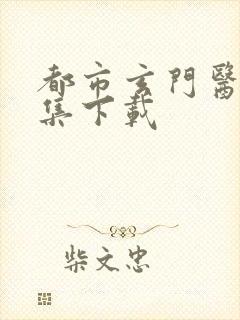 都市玄門醫
集下載
柴文忠